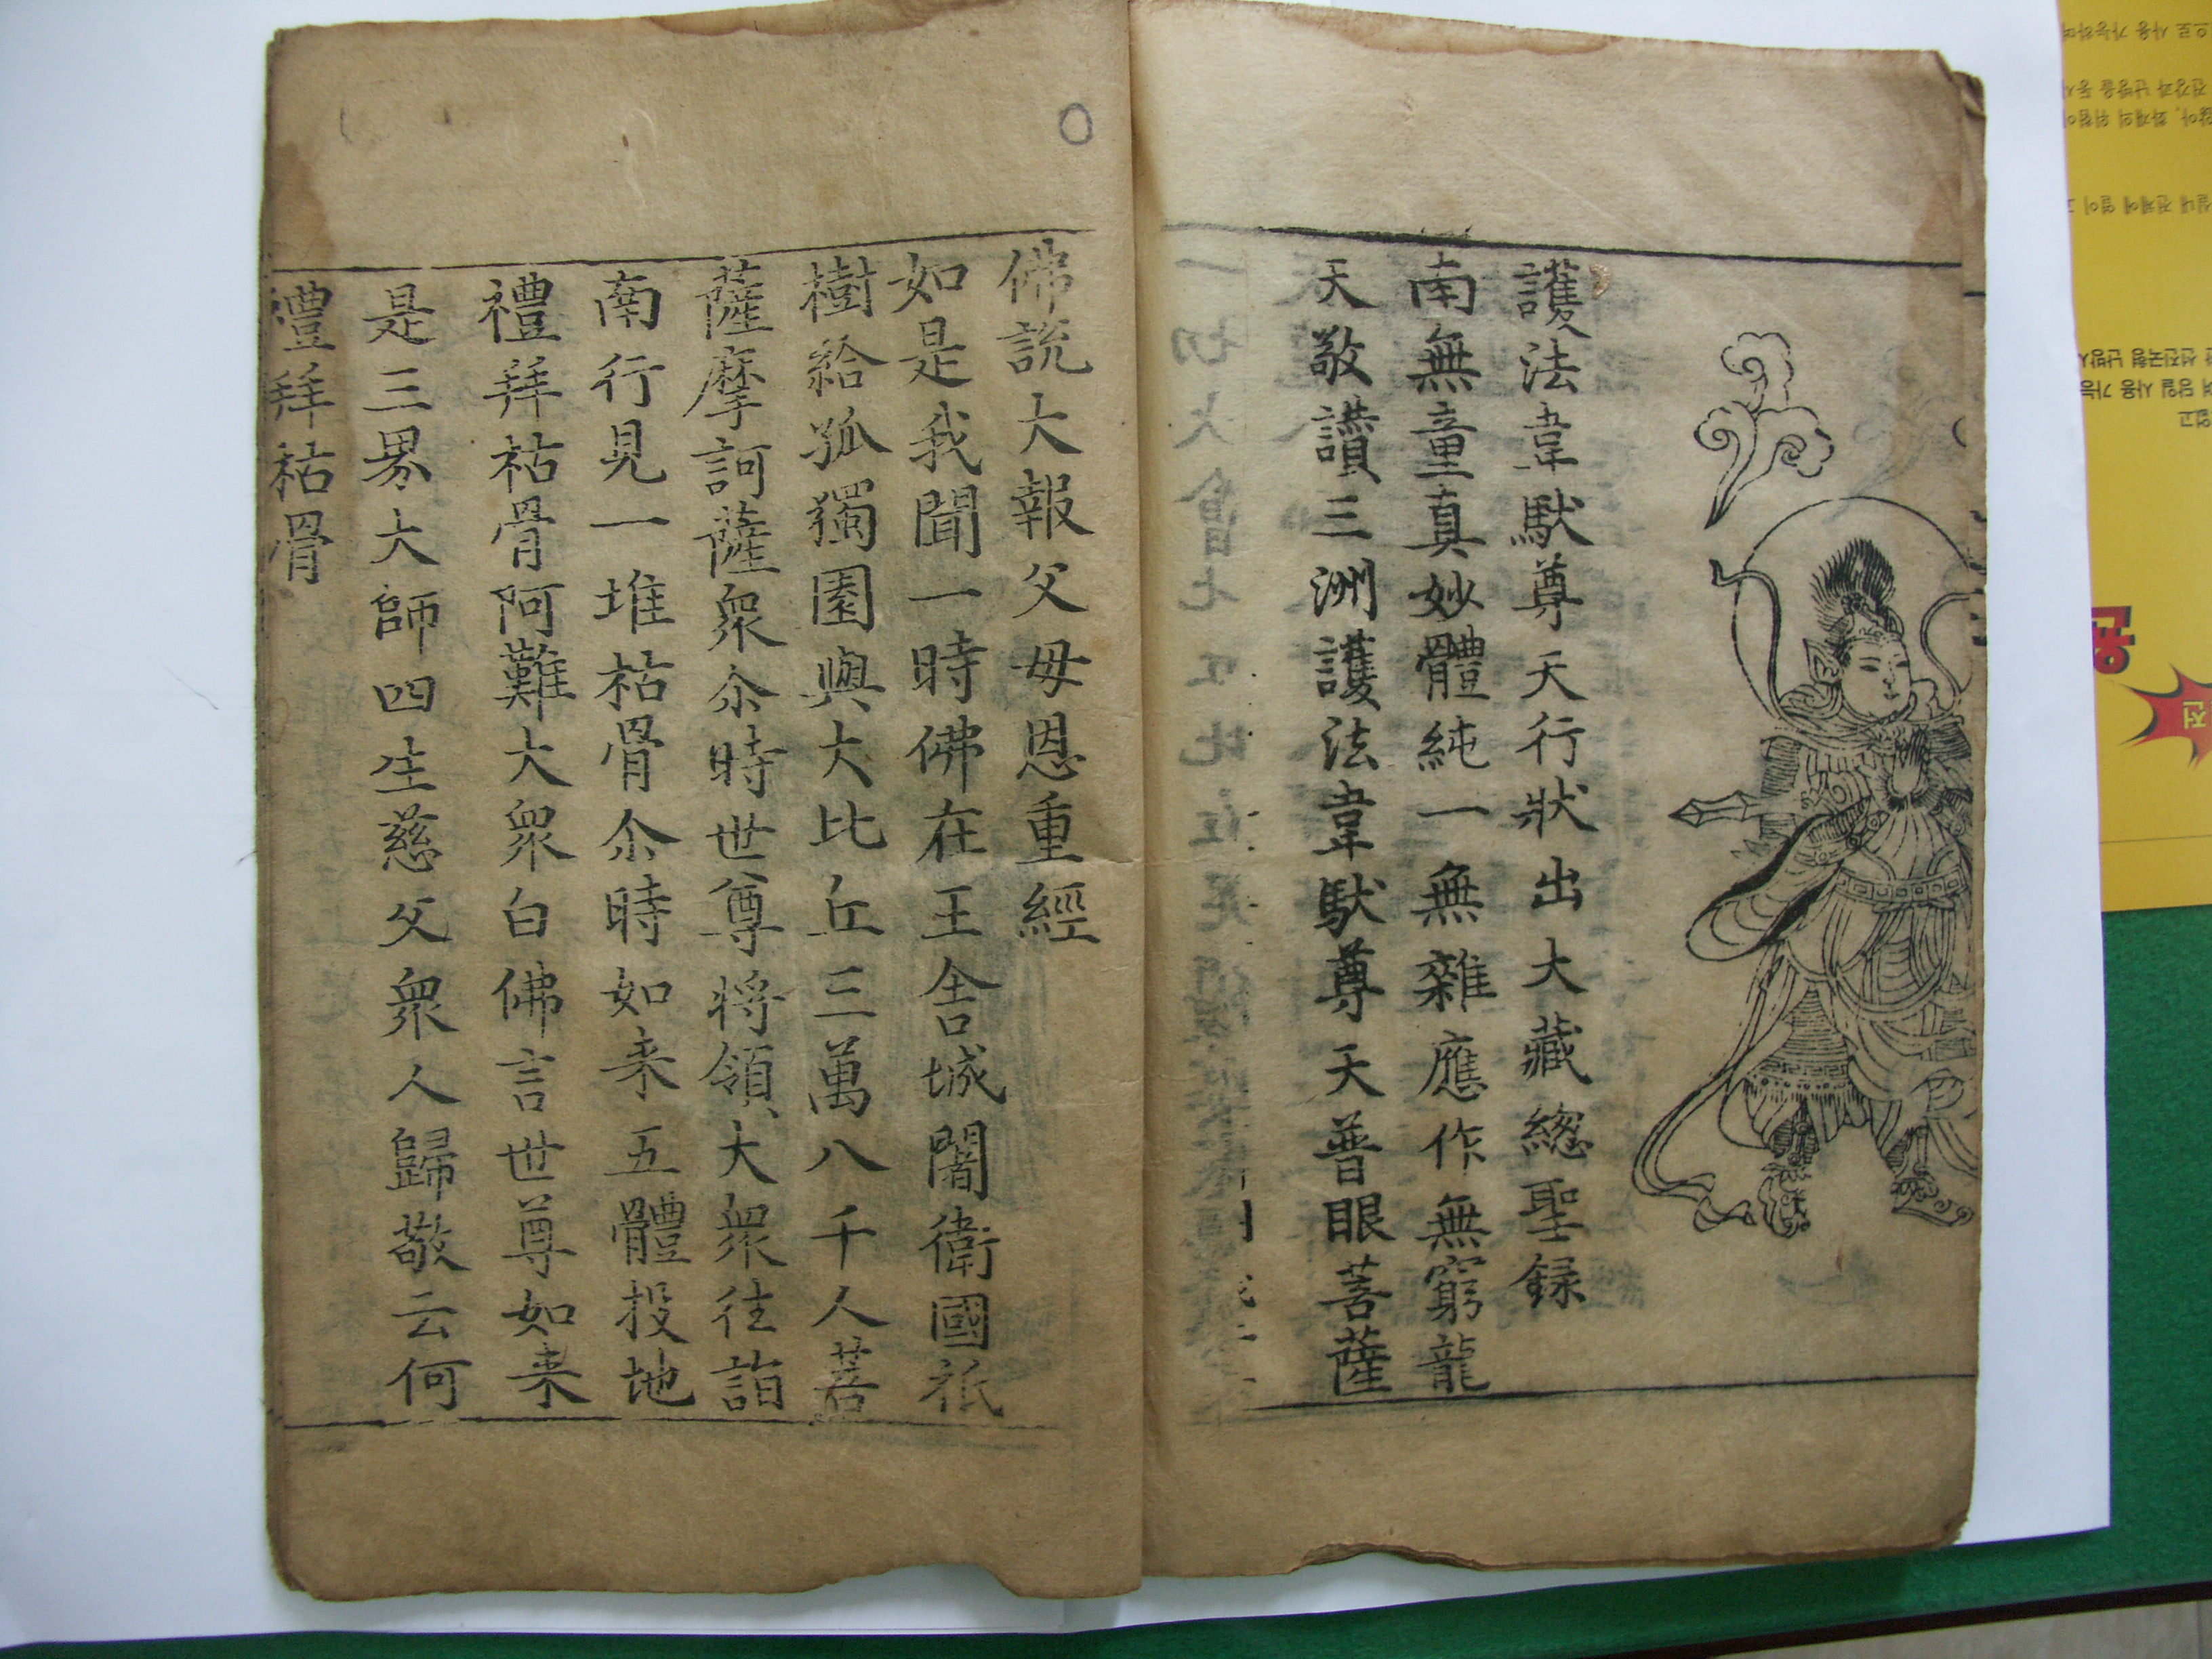 護法韋馱尊天行狀出大藏緫聖録
南無童真妙體純一無雜應作無窮龍
天敬讚三洲護法韋馱尊天普眼菩薩
佛說大報父母恩重經
如是我聞一時佛在王舍城闍衛國祇
樹給孤獨園與大比丘三萬八千人菩
薩摩訶薩衆尒時世尊將領大衆往詣
南行見一堆祜骨尒時如来五體投地
禮拜祜骨阿難大衆白佛言世尊如来
是三界大師四生慈父衆人歸敬云何
禮拜祜骨